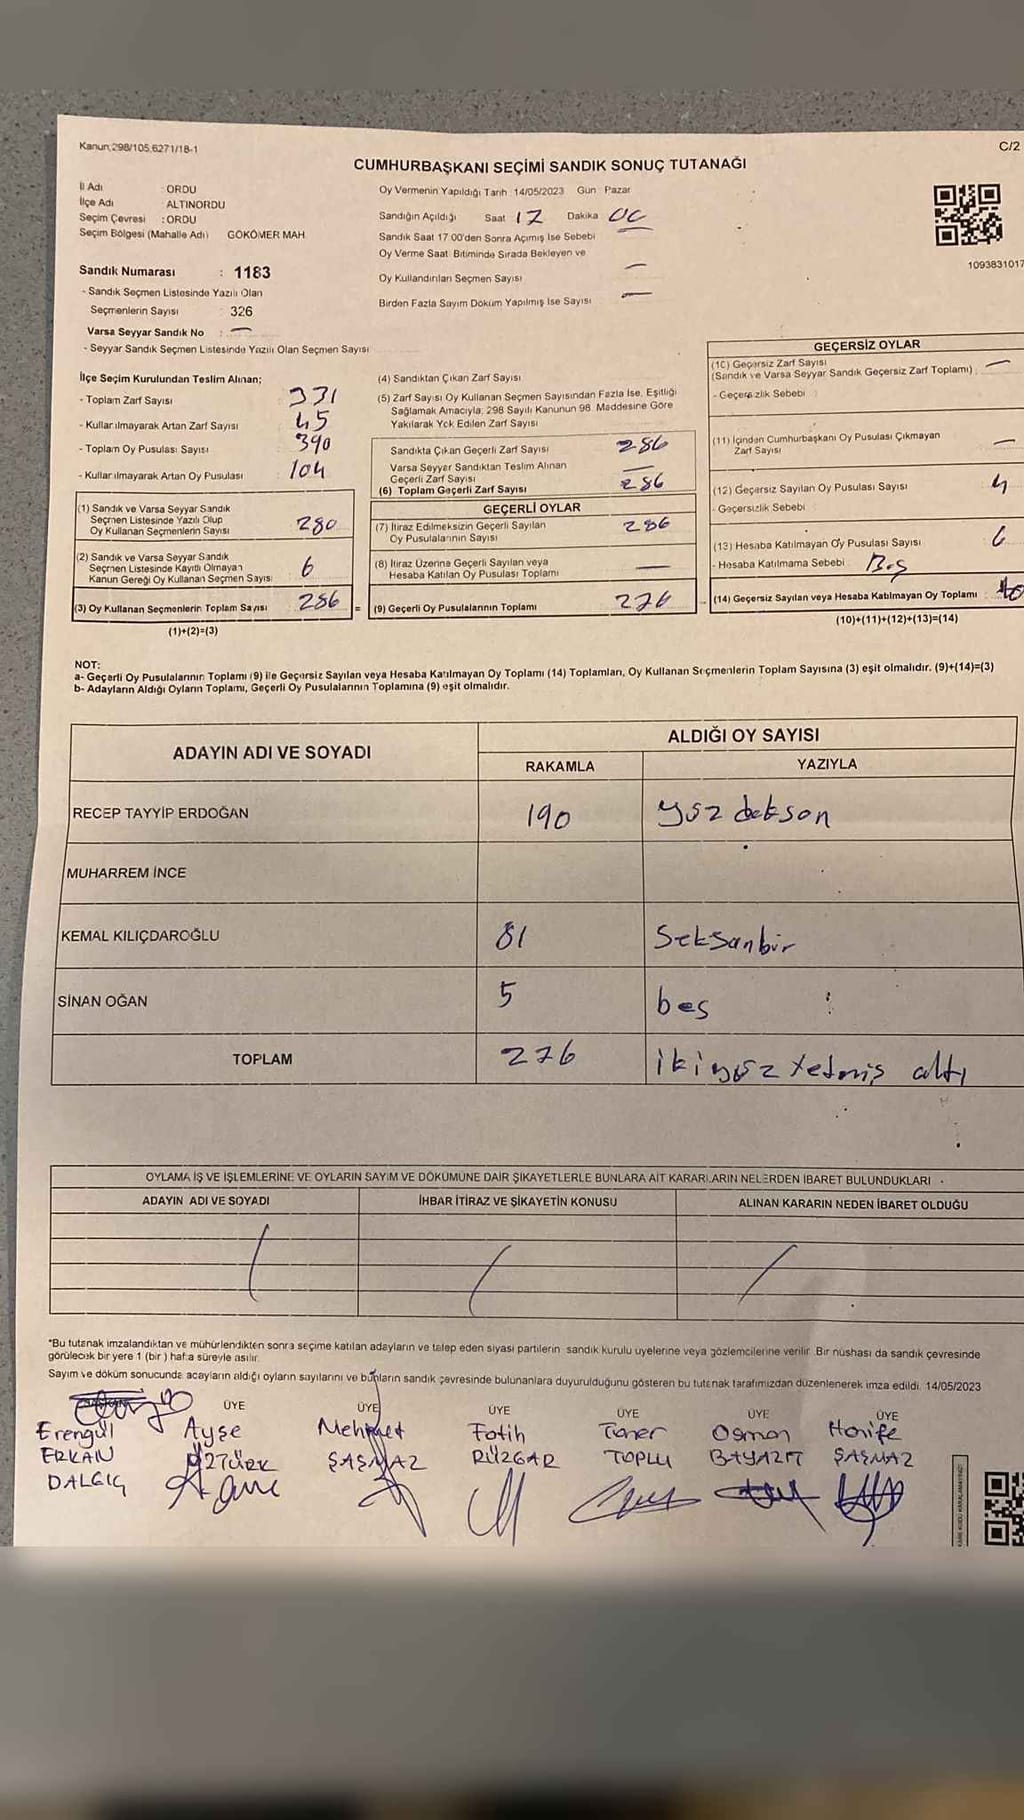 Kanun;298/105,6271/18-1
C/2
CUMHURBAŞKANI SEÇİMİ SANDIK SONUÇ TUTANAĞI
İl Adı : ORDU
İlçe Adı : ALTINORDU
Seçim Çevresi : ORDU
Seçim Bölgesi (Mahalle Adı) GÖKÖMER MAH.
Sandık Numarası : 1183
- Sandık Seçmen Listesinde Yazılı Olan
Seçmenlerin Sayısı : 326
Varsa Seyyar Sandık No : —
- Seyyar Sandık Seçmen Listesinde Yazılı Olan Seçmen Sayısı
Oy Vermenin Yapıldığı Tarih 14/05/2023 Gün Pazar
Sandığın Açıldığı Saat 17 Dakika 00
Sandık Saat 17 00'den Sonra Açımış İse Sebebi
Oy Verme Saat Bitiminde Sırada Bekleyen ve
Oy Kullandırılan Seçmen Sayısı —
Birden Fazla Sayım Döküm Yapılmış İse Sayısı —
1093831017
İlçe Seçim Kurulundan Teslim Alınan;
- Toplam Zarf Sayısı 331
- Kullanılmayarak Artan Zarf Sayısı 45
- Toplam Oy Pusulası Sayısı 390
- Kullanılmayarak Artan Oy Pusulası 104
(1) Sandık ve Varsa Seyyar Sandık
Seçmen Listesinde Yazılı Olup
Oy Kullanan Seçmenlerin Sayısı 280
(2) Sandık ve Varsa Seyyar Sandık
Seçmen Listesinde Kayıtlı Olmayan
Kanun Gereği Oy Kullanan Seçmen Sayısı 6
(3) Oy Kullanan Seçmenlerin Toplam Sayısı 286 =
(1)+(2)=(3)
(4) Sandıktan Çıkan Zarf Sayısı
(5) Zarf Sayısı Oy Kullanan Seçmen Sayısından Fazla İse, Eşitliği
Sağlamak Amacıyla, 298 Sayılı Kanunun 98. Maddesine Göre
Yakılarak Yok Edilen Zarf Sayısı
Sandıkta Çıkan Geçerli Zarf Sayısı 286
Varsa Seyyar Sandıktan Teslim Alınan
Geçerli Zarf Sayısı —
(6) Toplam Geçerli Zarf Sayısı 286
GEÇERLİ OYLAR
(7) İtiraz Edilmeksizin Geçerli Sayılan
Oy Pusulalarının Sayısı 286
(8) İtiraz Üzerine Geçerli Sayılan veya
Hesaba Katılan Oy Pusulası Toplamı —
(9) Geçerli Oy Pusulalarının Toplamı 276
GEÇERSİZ OYLAR
(10) Geçersiz Zarf Sayısı
(Sandık ve Varsa Seyyar Sandık Geçersiz Zarf Toplamı) : —
- Geçersizlik Sebebi
(11) İçinden Cumhurbaşkanı Oy Pusulası Çıkmayan
Zarf Sayısı —
(12) Geçersiz Sayılan Oy Pusulası Sayısı 4
- Geçersizlik Sebebi
(13) Hesaba Katılmayan Oy Pusulası Sayısı 6
- Hesaba Katılmama Sebebi Boş
(14) Geçersiz Sayılan veya Hesaba Katılmayan Oy Toplamı : 10
(10)+(11)+(12)+(13)=(14)
NOT:
a- Geçerli Oy Pusulalarının Toplamı (9) ile Geçersiz Sayılan veya Hesaba Katılmayan Oy Toplamı (14) Toplamları, Oy Kullanan Seçmenlerin Toplam Sayısına (3) eşit olmalıdır. (9)+(14)=(3)
b- Adayların Aldığı Oyların Toplamı, Geçerli Oy Pusulalarının Toplamına (9) eşit olmalıdır.
ADAYIN ADI VE SOYADI
ALDIĞI OY SAYISI
RAKAMLA YAZIYLA
RECEP TAYYİP ERDOĞAN 190 yüz dokson
MUHARREM İNCE
KEMAL KILIÇDAROĞLU 81 Seksanbir
SİNAN OĞAN 5 beş
TOPLAM 276 ikiyüz yetmiş altı
OYLAMA İŞ VE İŞLEMLERİNE VE OYLARIN SAYIM VE DÖKÜMÜNE DAİR ŞİKAYETLERLE BUNLARA AİT KARARLARIN NELERDEN İBARET BULUNDUKLARI
ADAYIN ADI VE SOYADI İHBAR İTİRAZ VE ŞİKAYETİN KONUSU ALINAN KARARIN NEDEN İBARET OLDUĞU
*Bu tutanak imzalandıktan ve mühürlendikten sonra seçime katılan adayların ve talep eden siyasi partilerin sandık kurulu üyelerine veya gözlemcilerine verilir. Bir nüshası da sandık çevresinde
görülecek bir yere 1 (bir ) hafta süreyle asılır.
Sayım ve döküm sonucunda adayların aldığı oyların sayılarını ve bunların sandık çevresinde bulunanlara duyurulduğunu gösteren bu tutanak tarafımızdan düzenlenerek imza edildi. 14/05/2023
ÜYE ÜYE ÜYE ÜYE ÜYE ÜYE
Erengül Ayşe Mehmet Fatih Taner Osman Hanife
ERKAN ÖZTÜRK ŞAŞMAZ RÜZGAR TOPLU BAYAZIT ŞAŞMAZ
DALGIÇ